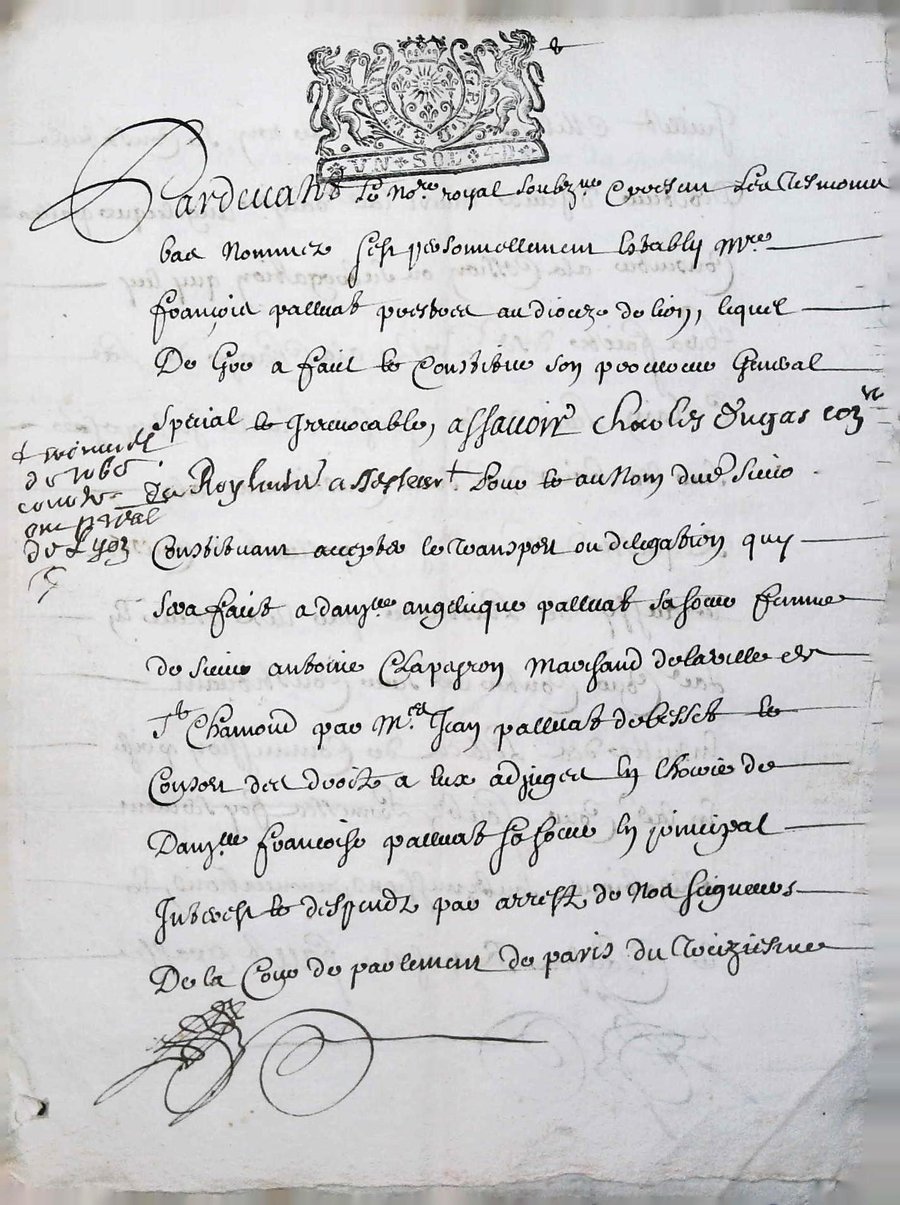 GNALITE DE LYON
VN SOL 4 D
Pardevant Le No.re royal soubz.ne et presens Les tesmoins
bas nommez sest personnellement estably Mre
françois palluat prestre au dioceze de lion, lequel
De Gre a fait et Constitue son procureur General
special et Irrevocable, assavoir Charles Dugas
du Roy Pour et au Nom dud. sieur
Constituant accepter le transport ou delegation quy
sera faict a dam.lle angelique palluat sa soeur femme
de sieur antoine Chapeyron Marchand de la ville de
St Chamond par Mre Jean palluat de besset et
Consors des droitz a eux adjugez en hoirie de
Dam.lle francoise palluat sa soeur en principal
Interest et despendz par arrest de Nos seigneurs
De la Cour de parlement de paris du treiziesme
de robe
de Lyon